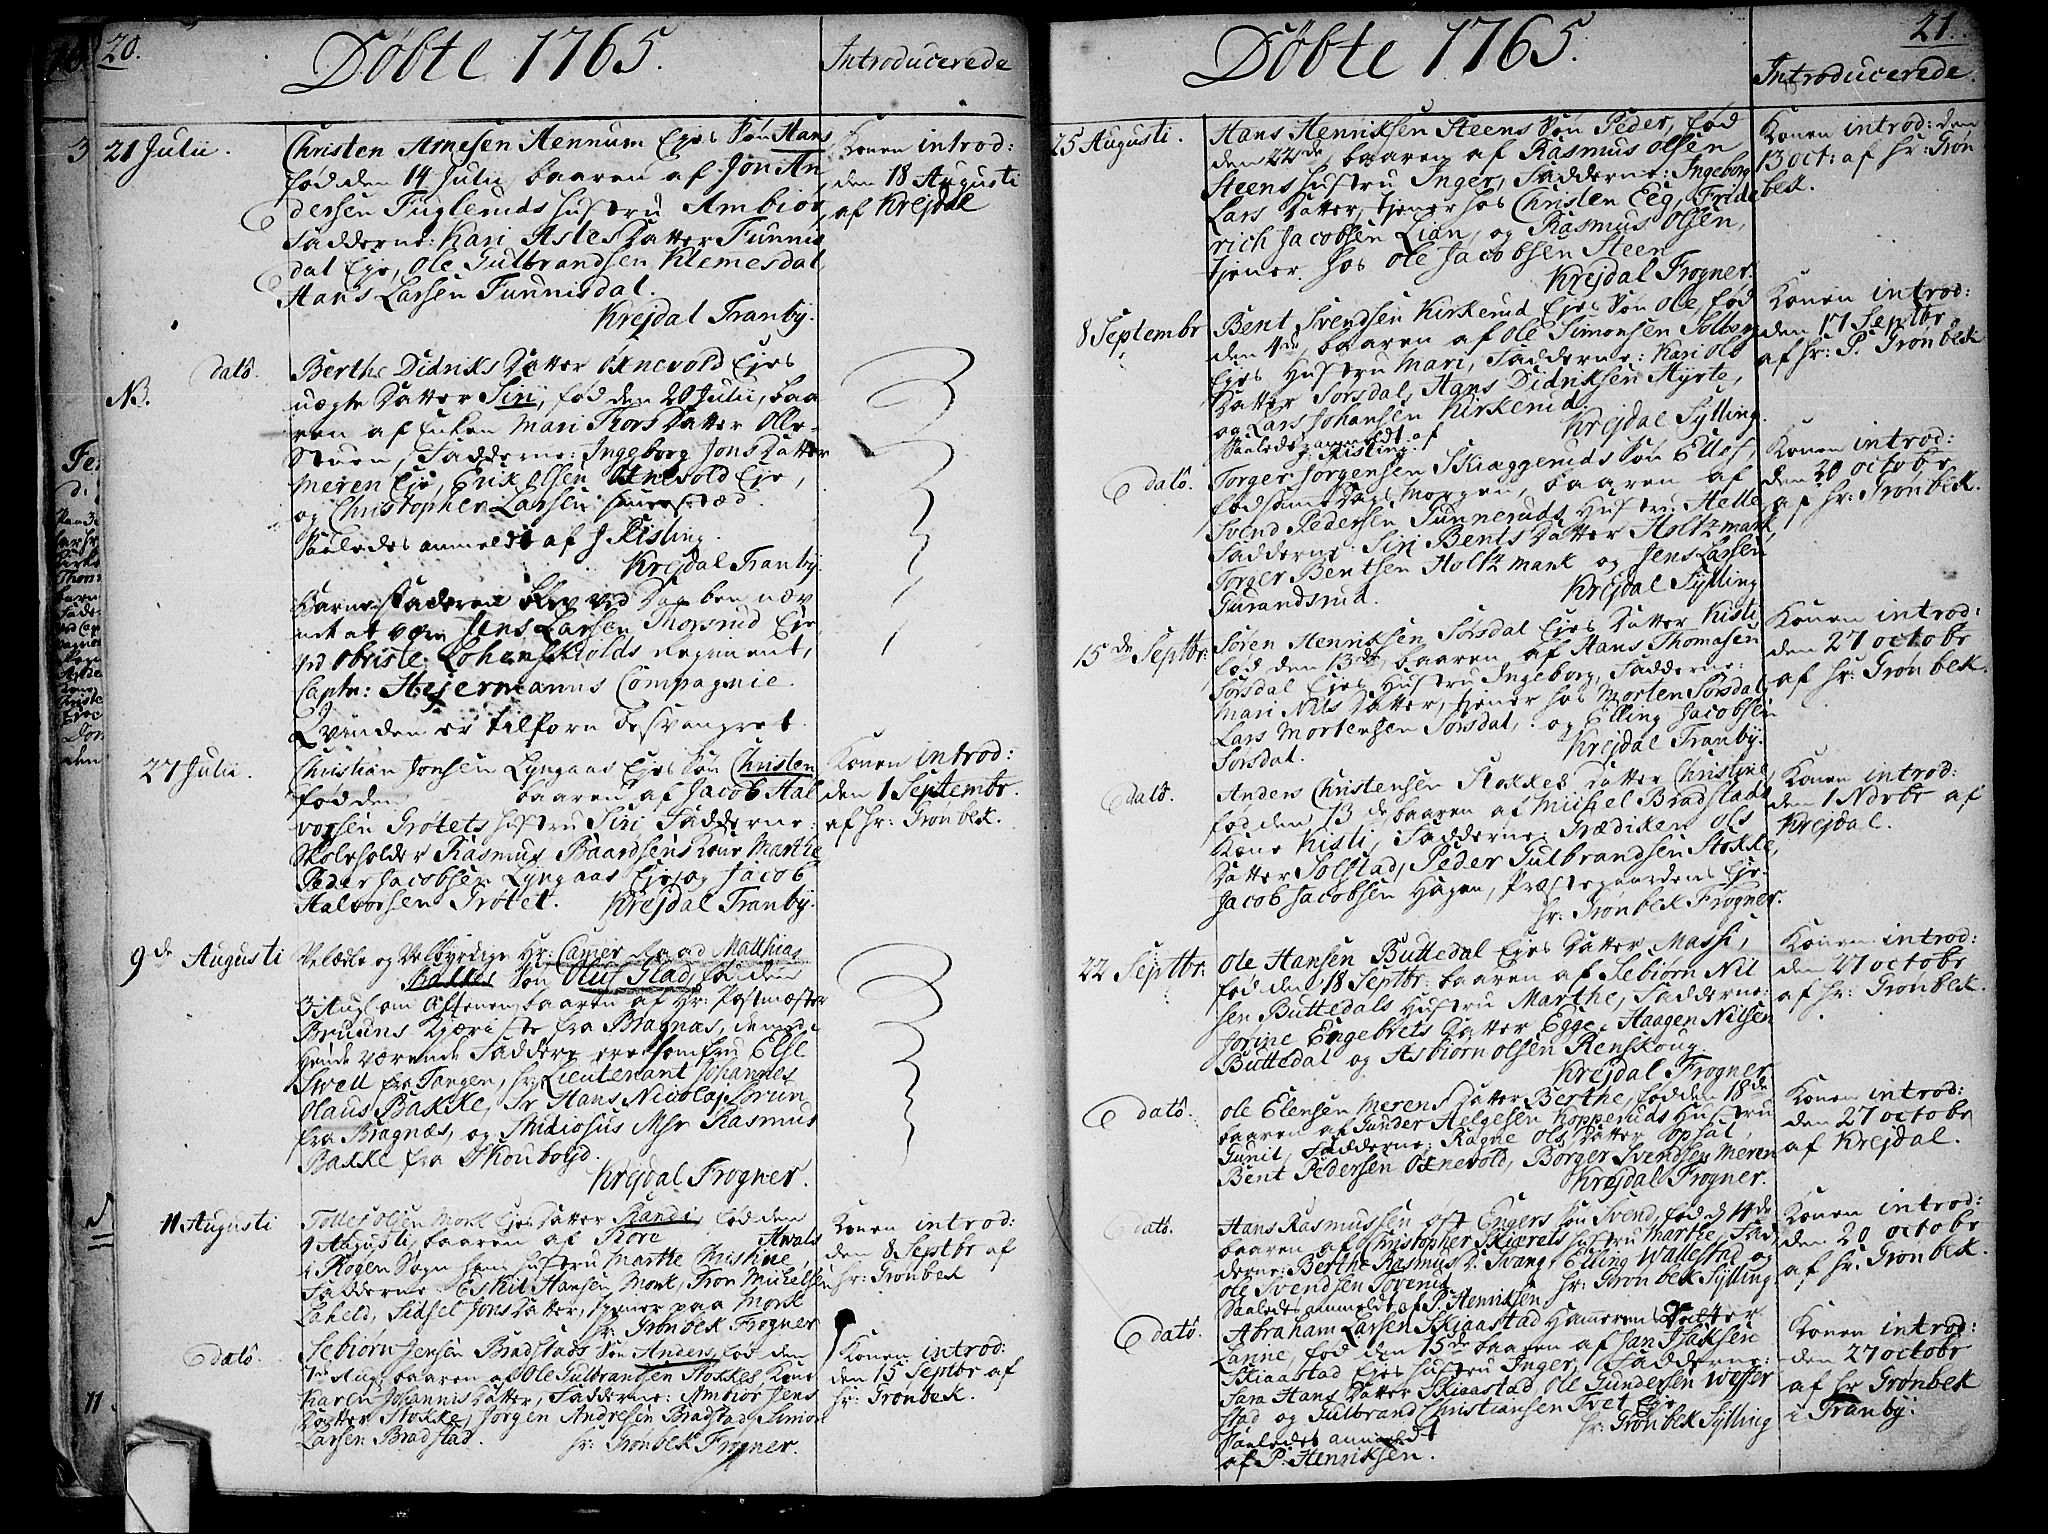 20.
Döbte 1765.
Introducerede
21 Julii.
Christen Arnesen Hennum Ejes Søn Hans
fød den 14 Julii baaren af Jon An,
dersen Fuglerudshustru Ambior,
Fadderne: Kari Asles Datter Tunnis
dal Eje, Ole Gulbrandsen Klemesdal,
Hans Larsen Tunnisdal.
Krejdal Tranby.
Konen introd:
den 18 Augusti
af Krejdal
NB. dato.
Berthe Didriks Datter Oxnevold Ejes
uægte Datter Siri, fød den 20 Julii, baa
ren af Enken Mari Thors Datter Olle
Stuen, Fadderne: Ingeborg Jons Datter
Meren Eje, Erik Olsen Oxnevold Eje,
og Christopher Larsen
Saaledes anmeldt af J. Risling.
Krejdal Tranby.
Barnefaderen blev ved Daaben næv
net at være Jens Larsen Thorsrud Eje,
ved Obriste Lohenskiolds Regiment,
Captn: Hejermanns Compagnie.
Qvinden er tilforn besvangret.
27 Julii.
Christian Jonsen Lyngaas Ejes Søn Christen
fød den baaren af Jacob Hal
vorsen Grøtets hustru Siri, Fadderne:
Skoleholder Rasmus Baardsens Kone Marthe
Peder Jacobsen Lyngaas Eje, og Jacob
Halvorsen Grøtet. Krejdal Tranby.
Konen introd:
den 1 Septembr.
af Hr: Grønbek.
9de Augusti
Velædle og Velbyrdige Hr: Camer Raad Matthias
Bakkes Søn Oluf Glad, fød den
3 Aug: om Aftenen, baaren af Hr: Postmester
Bruuns Kjæriste fra Bragnæs, de
Hende værende Faddere ere Jomfru Else
Swell fra Tangen, Hr: Lieutenant Johannes
Olaus Bakke, Sr Hans Nicolaj Bruun
fra Bragnæs, og Studiosus Msr Rasmus
Bakke fra Skouboyd.
Krejdal Frogner.
11 Augusti
Tollef Olsen Mork Ejes Datter Randi, fød den
4 Augusti, baaren af Tore Awals
i Skogen Sogn hans hustru Marthe Christine,
Fadderne Eskil Hansen Mork, Tron Michelsen
Laheld, Sidsel Jons Datter, tjener paa Mork
Hr: Grønbek Frogner
Konen introd:
den 8 Septbr af
Hr: Grønbek
dato.
Sebiørn Jensen Bradstads Søn Anders, fød den
1ste Aug: baaren af Ole Gulbrandsen Stokkes Kone
Karen Johannis Datter, Fadderne: Ambior Jens
Datter Stokke, Jørgen Andresen Bradstad, Simon
Larsen Bradstad. Hr: Grønbek Frogner.
Konen introd:
den 15 Septbr af
Hr: Grønbek.
21.
Döbte 1765.
Introducerede.
25 Augusti.
Hans Henriksen Steens Søn Peder, fød
den 22de, baaren af Rasmus Olsen
Steens hustru Inger, Fadderne: Ingeborg
Lars Datter, tjener hos Christen Eeg, Fride
rich Jacobsen Lian, og Rasmus Olsen,
tjener hos Ole Jacobsen Steen
Krejdal Frogner.
Konen introd: den
13 Oct: af Hr: Grøn
bek.
8 Septembr
Bent Svendsen Kirkerud Ejes Søn Ole, fød
den 4de, baaren af Ole Simonsen Solberg
Ejes Hustru Mari, Fadderne: Kari Ols
Datter Sørsdal, Hans Didriksen Hyrte,
og Lars Johansen Kirkerud
Krejdal Sylling.
Saaledes anmeldt af
Risling.
Konen introd:
den 17 Septbr
af Hr: P. Grønbek
dato.
Torger Jørgensen Skiæggeruds Søn Ellef,
fød samme Dags Morgen, baaren af
Svend Pedersen Tunneruds Hustru Helle,
Fadderne: Siri Bents Datter Holtzmark,
Torger Bentsen Holtzmark og Jens Larsen
Gurandsrud. Krejdal Sylling
Konen introd:
den 20 Octobr
af Hr: Grønbek.
15de Septbr:
Søren Henriksen Sørsdal Ejes Datter Kisti
fød den 13de, baaren af Hans Thomasen
Sørsdal Ejes Hustru Ingeborg, Fadderne:
Mari Nils Datter, tjener hos Morten Sørsdal,
Lars Mortensen Sørsdal, og Elling Jacobsen
Sørsdal. Krejdal Tranby.
Konen introd:
den 27 Octobr
af Hr: Grønbek.
dato.
Anders Christensen Stokkes Datter Christine,
fød den 13de baaren af Michel Bradstads
Kone Kisti, Fadderne: Grædiken Ols
Datter Solstad, Peder Gulbrandsen Stokke,
Jacob Jacobsen Hagen, Præstegaardens Eje.
Hr: Grønbek Frogner.
Konen introd:
den 1 Novbr af
Krejdal.
22 Septbr:
Ole Hansen Buttedal Ejes Datter Massi,
fød den 18 Septbr: baaren af Sebiørn Nil
sen Buttedals Hustru Marthe, Fadderne:
Jorine Engebrets Datter Egge, Haagen Nilsen
Buttedal og Asbiørn Olsen Renskoug.
Krejdal Frogner
Konen introd:
den 27 Octobr
af Hr: Grønbek.
dato.
Ole Elensen Merens Datter Berthe, fød den 18de
baaren af Gunder Helgesen Kopperuds Hustru
Gunil, Fadderne: Ragne Ols Datter Opsal,
Bent Pedersen Oxnevold, Børger Svendsen Meren
Krejdal Frogner.
Konen introd:
den 27 Octobr
af Krejdal.
dato.
Hans Rasmussen Øst Engers Søn Svend, fød d 14de
baaren af Christopher Skiærets hustru Marthe, Fad
derne: Berthe Rasmus D. Svang, Elling Wallestad og
Ole Svendsen Toverud Hr: Grønbek Sylling
Saaledes anmeldt af P. Henriksen
Konen introd:
den 20 Octobr
af Hr: Grønbek.
dato.
Abraham Larsen Skiaastad Hammerens Datter
Larine, fød den 15de baaren af Jan Isaksen
Skiaastad Ejes hustru Inger, Fadderne:
Sara Hans Datter Skiaastad, Ole Gundersen Weffer
stad og Gulbrand Christiansen Tvet Eje
Hr: Grønbek Sylling
Saaledes anmeldt
af P. Henriksen.
Konen introd:
den 27 Octobr
af Hr Grønbek
i Tranby.